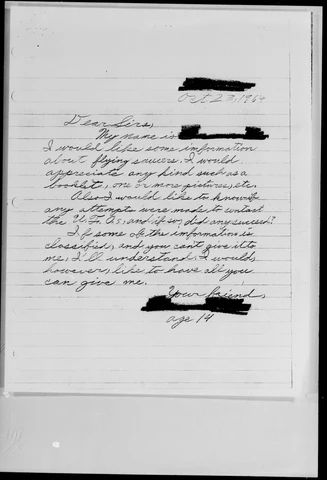 Oct 23, 1964
Dear Sirs,
My name is
I would like some information
about flying saucers. I would
appreciate any kind such as a
booklet, one or more pictures, etc.
Also I would like to know if
any attempts were made to contact
the U.F.O's, and if so, did any succeed?
If some of the information is
classified, and you can't give it to
me, I'll understand. I would,
however, like to have all you
can give me.
Your friend,
age 14